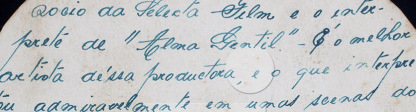 socio da Selecta Film e o inter-
prete de "Alma Gentil" - É o melhor
artista dessa productora, e o que interpre
tou admiravelmente em umas scenas do